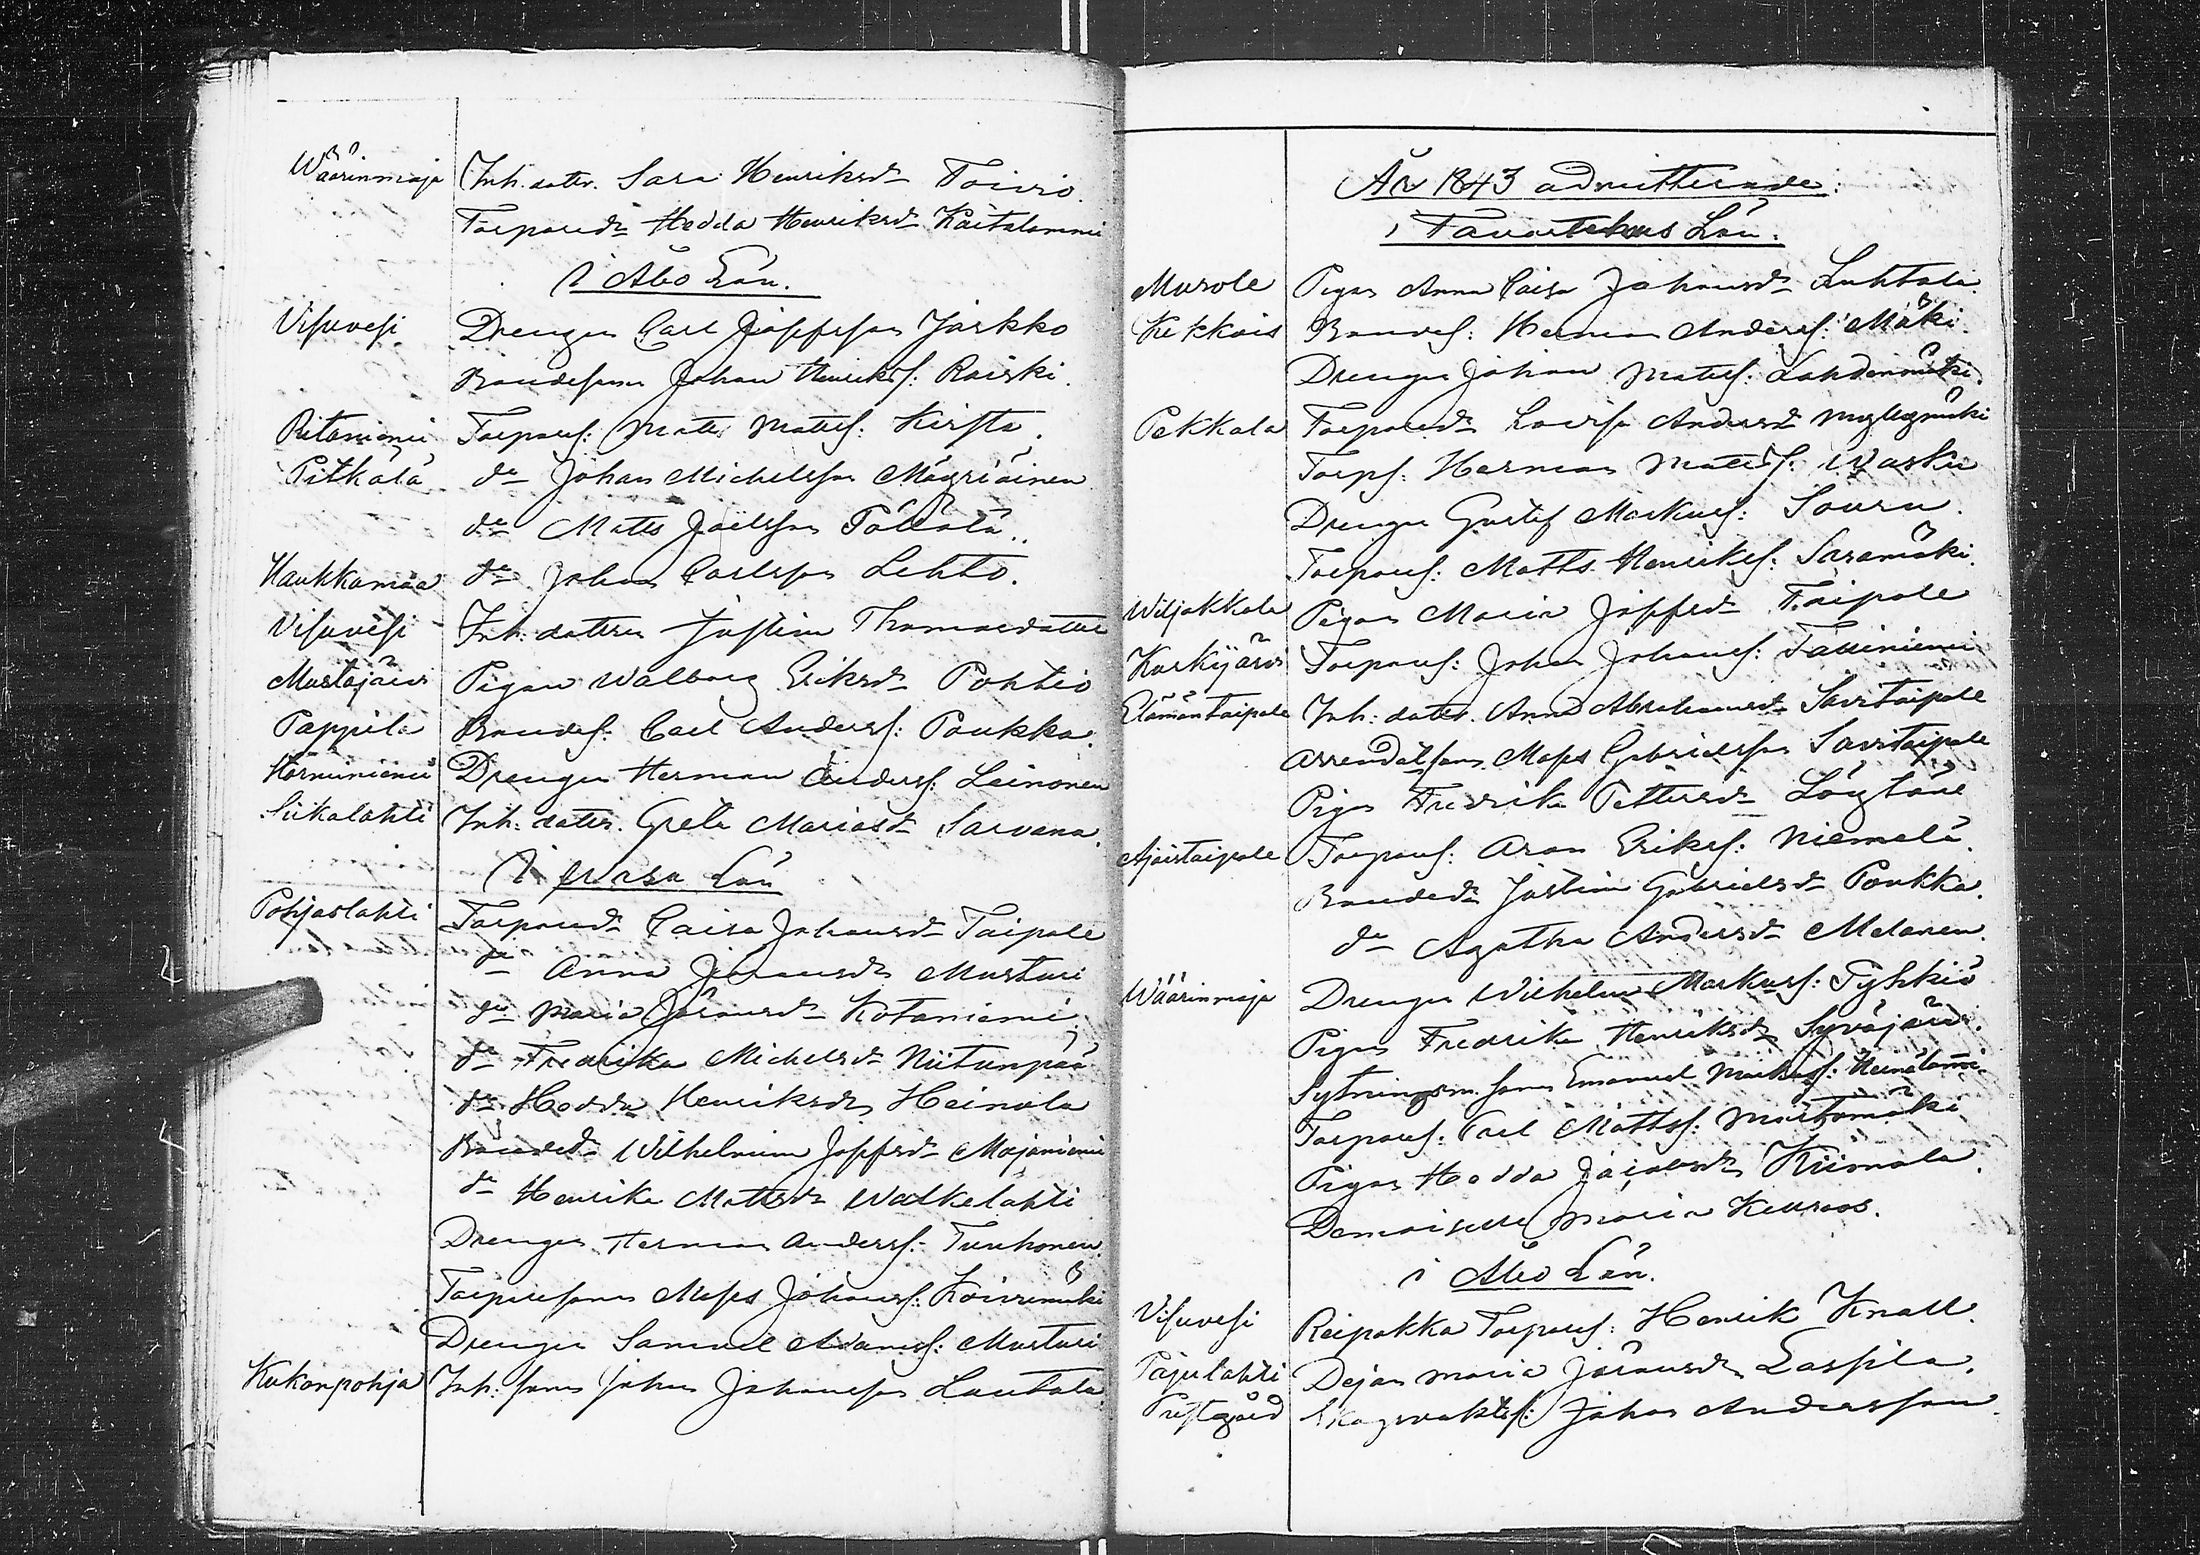 Wäärinmaja Inh. dottr. Sara Henriksdr Toivio.
Torparedr Hedda Henriksdr Kaitalammi
I Åbo Län.
Visuvesi Drengen Carl Josefsson Jäskko
Bondeson Johan Henrikss: Raiski.
Ritaniemi Torpares: Matts Mattss: Kirsta.
Pitkälä do Johan Michelsson Mäyriäinen
do Matts Joelsson Töllölä.
Haukkamaa do Johan Carlsson Lehto.
Visuvesi Inh: dottren Justina Thomasdotter
Mustajärvi Pigan Walborg Eriksdr Pohtio
Pappila Bondes: Carl Anderss: Poukka.
Hörninniemi Drengen Herman Anderss: Leinonen
Siikalahti Inh: dottr. Greta Mariasdr Sarvana.
I Wasa Län
Pohjaslahti Torparedr Caisa Johansdr Taipale
do Anna Göransdr Mustari
do Maria Göransdr Kotaniemi
do Fredrika Michelsdr Niitunpää
do Hedda Henriksdr Heinola
Bondedr Wilhelmina Josefsdr Majaniemi
do Henrika Mattsdr Walkelahti
Drengen Herman Anderss: Tuuhonen.
Torpareson Moses Johanss: Koivumäki
Drengen Samuel Adamss: Mustari
Kukonpohja Inh: son Johan Johansson Lautala
År 1843 admitterade:
i Tavastehus Län.
Murole Pigan Anna Caisa Johansdr Luhtala.
Kekkois Bondes: Herman Anderss: Mäki.
Drengen Johan Mattss: Lahdenmäki.
Pekkala Torparedr Lovisa Andersdr Myllymäki
Torps: Herman Mattss: Wasku
Drengen Gustaf Markuss: Souru.
Torpares: Matts Henrikss: Saramäki.
Wiljakkala Pigan Maria Josefsdr Taipale
Kurkijärvi Torpares: Johan Johanss: Tauiniemi
Elämäntaipale Inh: dottr. Anna Abrahamsdr Savitaipale
Arrendatson Moses Gabrielsson Savitaipale
Pigan Fredrika Pettersdr Löytäne
Ajostaipale Torpares: Aron Erikss: Niemelä.
Bondedr Justina Gabrielsdr Poukka.
do Agatha Andersdr Melanen.
Wäärinmaja Drengen Wilhelm Markuss: Tyhkiö
Pigan Fredrika Henriksdr Syväjärvi.
Sytningsm. son Emanuel Mickelss: Heinälammi.
Torpares. Carl Mattss: Mustamäki
Pigan Hedda Jacobsdr Kiimala.
Demoiselle Maria Keuroos.
i Åbo Län.
Visuvesi Reipakka Torpares: Henrik Knall.
Pajulahti Dejan Maria Göransdr Lassila.
Prestgård Skogvakts: Johan Andersson.